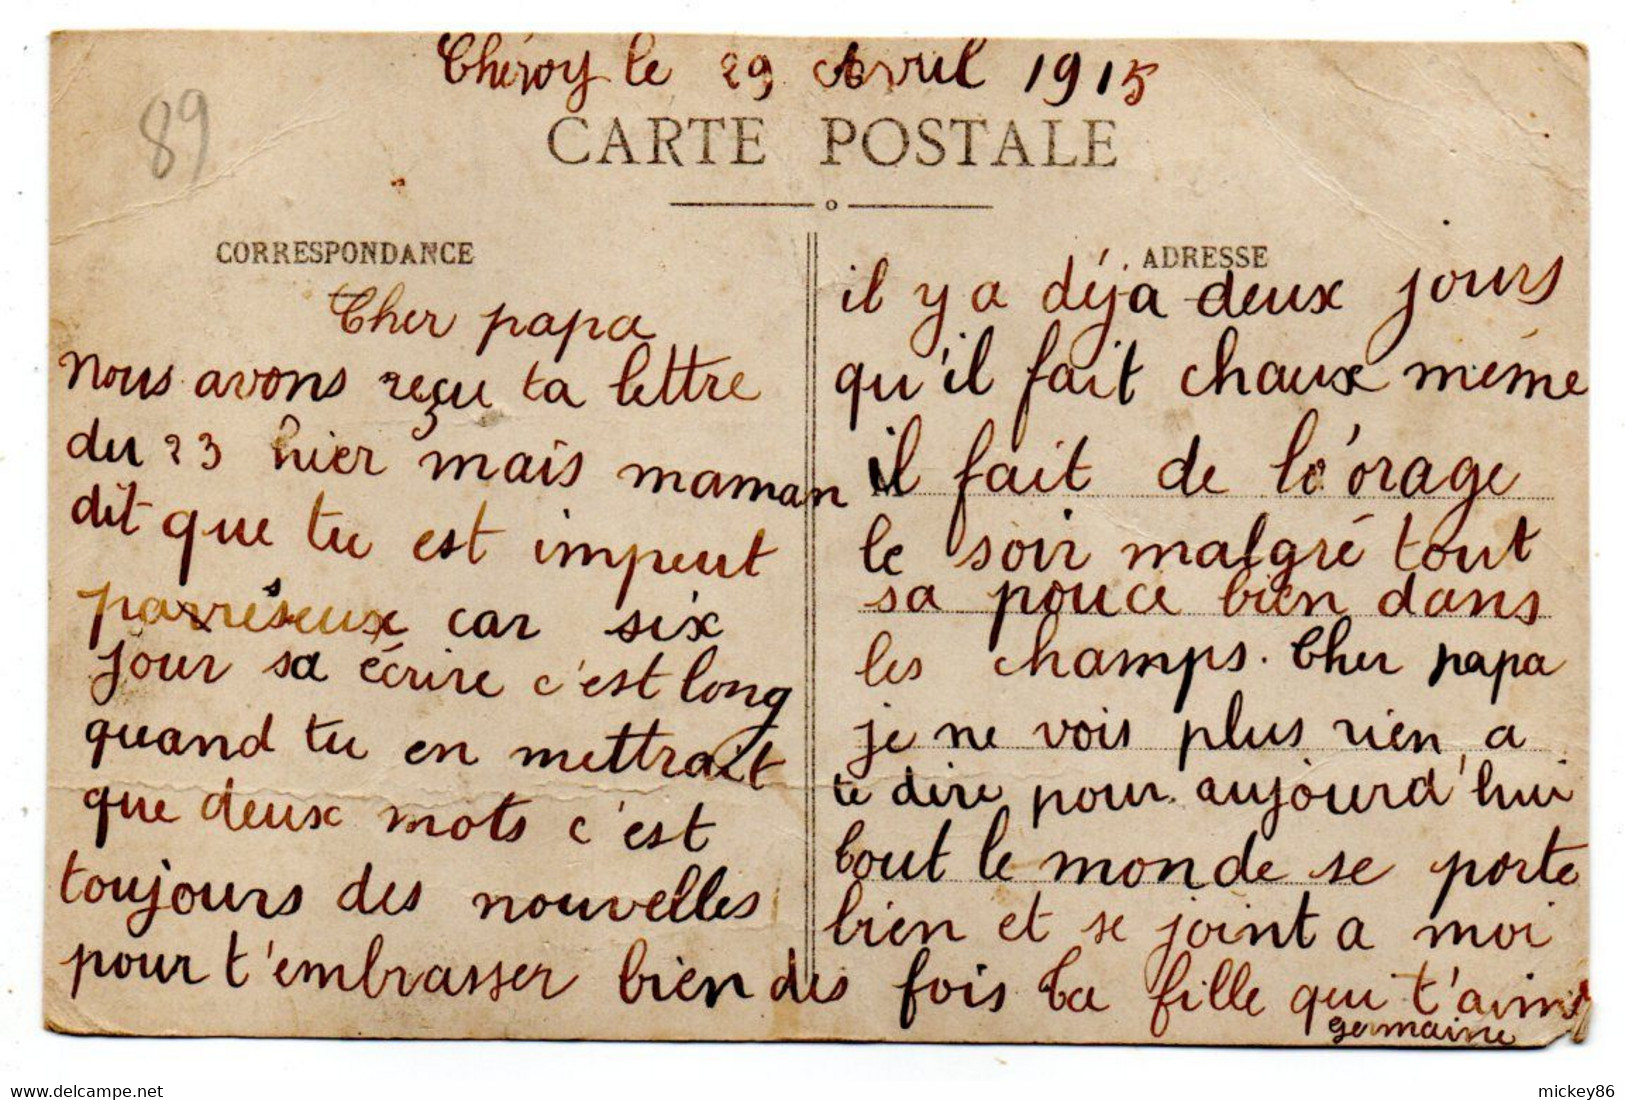 Chéroy le 29 Avril 1915
89
CARTE POSTALE
CORRESPONDANCE
Cher papa
nous avons reçu ta lettre
du 23 hier mais maman
dit que tu est impeut
parréseux car six
jour sa écrire c'est long
quand tu en mettrait
que deux mots c'est
toujours des nouvelles
ADRESSE
il y a déja deux jours
qu'il fait chaux même
il fait de l'orage
le soir malgré tout
sa pouce bien dans
les champs. Cher papa
je ne vois plus rien a
te dire pour aujourd'hui
tout le monde se porte
bien et se joint a moi
pour t'embrasser bien des fois ta fille qui t'aime
germaine
mickey86